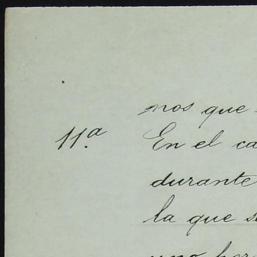 nos que
11ª En el ca
durante
la que s